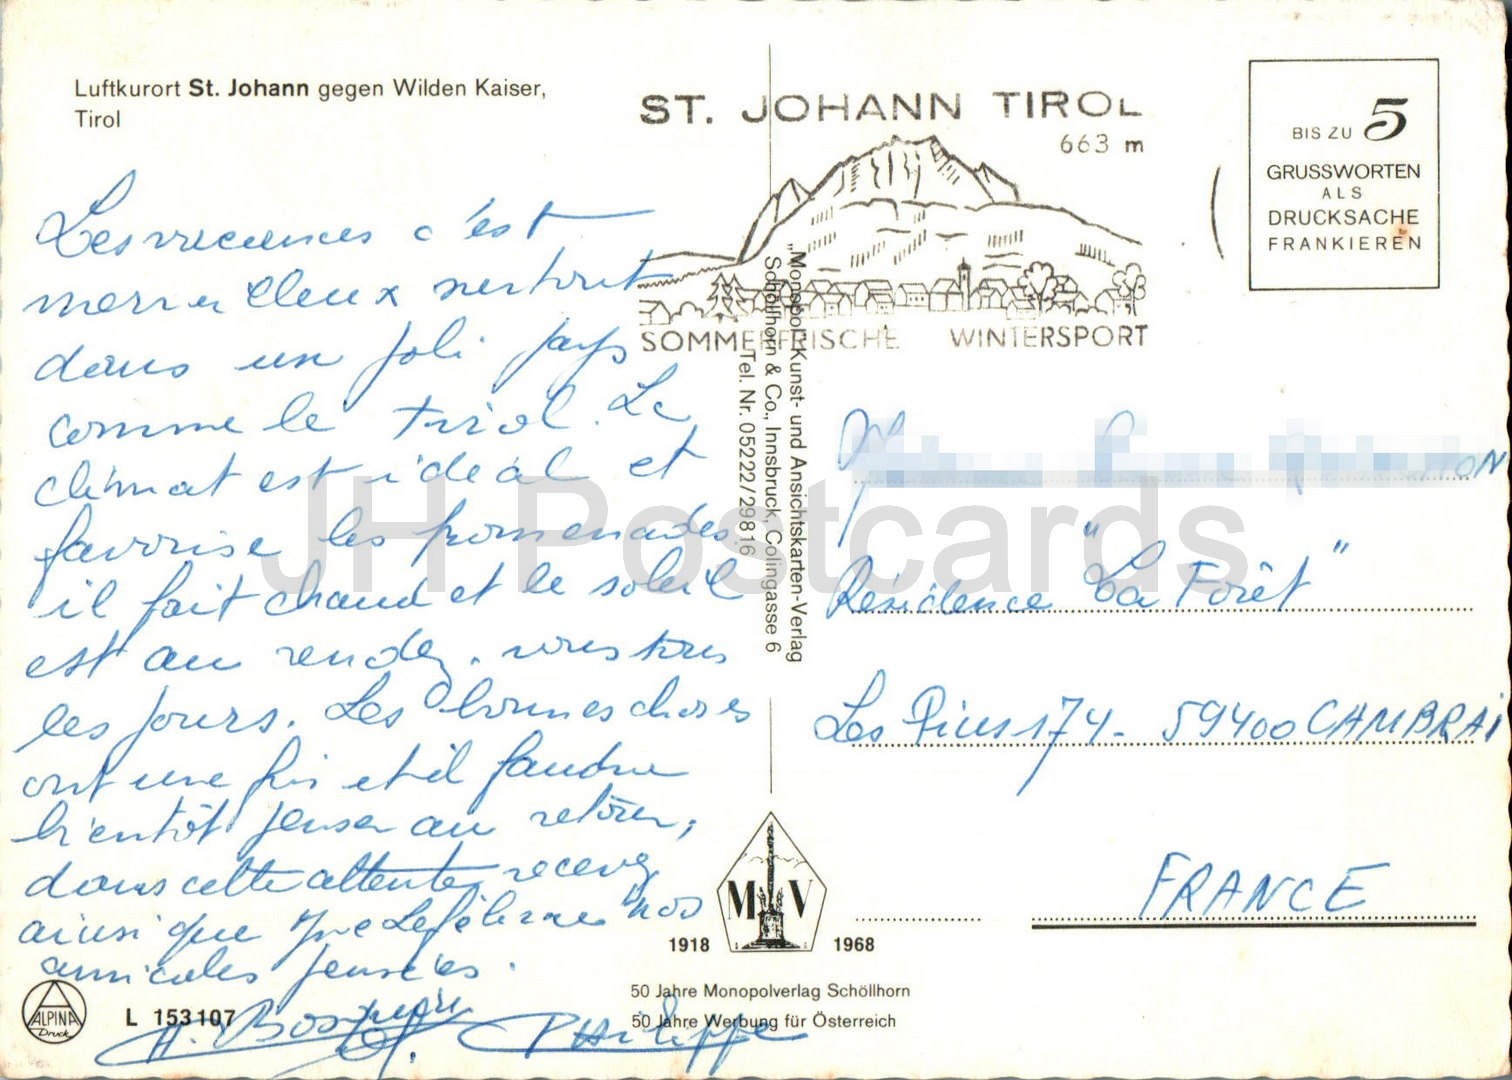 Luftkurort St. Johann gegen Wilden Kaiser,
Tirol
ST. JOHANN TIROL
663 m
SOMMERFRISCHE WINTERSPORT
BIS ZU 5
GRUSSWORTEN
ALS
DRUCKSACHE
FRANKIEREN
Les vacances c'est
merveilleux surtout
dans un joli pays
comme le Tirol. Le
climat est idéal et
favorise les promenades.
il fait chaud et le soleil
est au rendez-vous tous
les jours. Les bonnes choses
ont une fin et il faudra
bientôt penser au retour,
dans cette attente recevez
ainsi que nos
amicales pensées.
A. Philippe
"Monopol"-Kunst- und Ansichtskarten-Verlag
Schöllhorn & Co., Innsbruck, Colingasse 6
Tel. Nr. 05222/29816
ON
Résidence "La Forêt"
Les Pins 174 - 59400 CAMBRAI
FRANCE
M V
1918 1968
50 Jahre Monopolverlag Schöllhorn
50 Jahre Werbung für Österreich
ALPINA
Druck
L 153107
JH Postcards